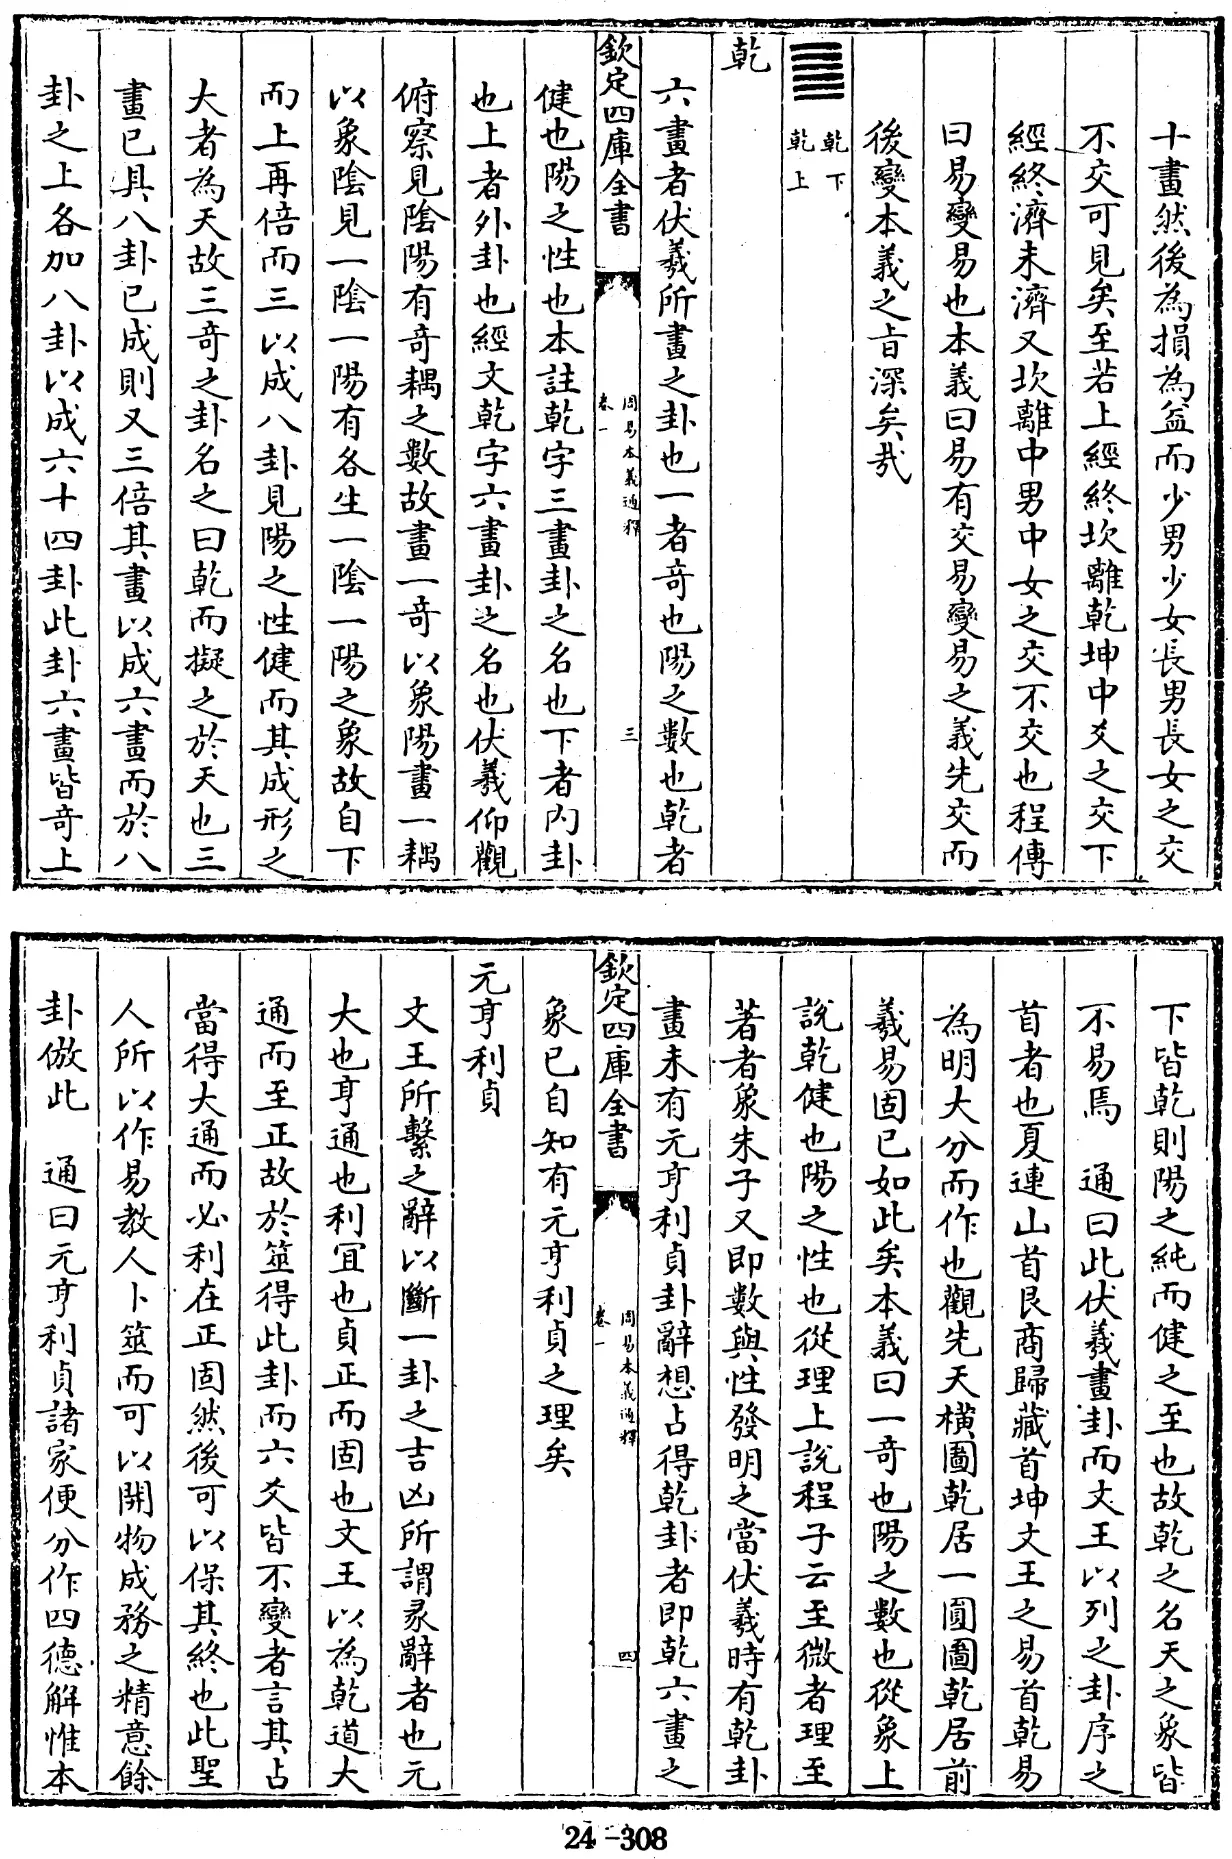 十畫然後為損為益而少男少女長男長女之交
不交可見矣至若上經終坎離乾坤中爻之交下
經終濟未濟又坎離中男中女之交不交也程傳
曰易變易也本義曰易有交易變易之義先交而
後變本義之旨深矣哉
乾下
乾上
乾
六畫者伏羲所畫之卦也一者奇也陽之數也乾者
欽定四庫全書
周易本義通釋
卷一
三
健也陽之性也本註乾字三畫卦之名也下者内卦
也上者外卦也經文乾字六畫卦之名也伏羲仰觀
俯察見陰陽有奇耦之數故畫一奇以象陽畫一耦
以象陰見一陰一陽有各生一陰一陽之象故自下
而上再倍而三以成八卦見陽之性健而其成形之
大者為天故三奇之卦名之曰乾而擬之於天也三
畫已具八卦已成則又三倍其畫以成六畫而於八
卦之上各加八卦以成六十四卦此卦六畫皆奇上
下皆乾則陽之純而健之至也故乾之名天之象皆
不易焉　通曰此伏羲畫卦而文王以列之卦序之
首者也夏連山首艮商歸藏首坤文王之易首乾易
為明大分而作也觀先天橫圖乾居一圓圖乾居前
羲易固已如此矣本義曰一奇也陽之數也從象上
說乾健也陽之性也從理上說程子云至微者理至
著者象朱子又即數與性發明之當伏羲時有乾卦
畫未有元亨利貞卦辭想占得乾卦者即乾六畫之
欽定四庫全書
周易本義通釋
卷一
四
象已自知有元亨利貞之理矣
元亨利貞
文王所繫之辭以斷一卦之吉凶所謂彖辭者也元
大也亨通也利宜也貞正而固也文王以為乾道大
通而至正故於筮得此卦而六爻皆不變者言其占
當得大通而必利在正固然後可以保其終也此聖
人所以作易教人卜筮而可以開物成務之精意餘
卦倣此　通曰元亨利貞諸家便分作四德解惟本
24-308